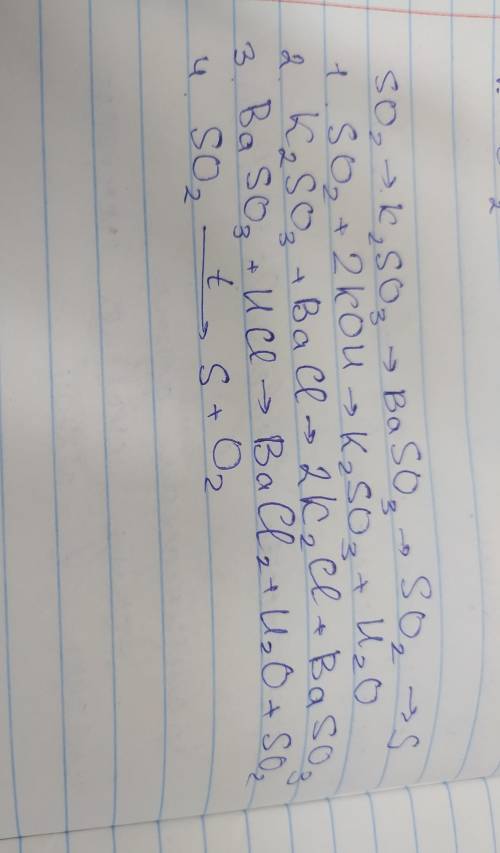 SO₂ → K₂SO₃ → BaSO₃ → SO₂ → S
1 SO₂ + 2KOH → K₂SO₃ + H₂O
2 K₂SO₃ + BaCl → 2K₂Cl + BaSO₃
3 BaSO₃ + HCl → BaCl₂ + H₂O + SO₂
4 SO₂ —t→ S + O₂